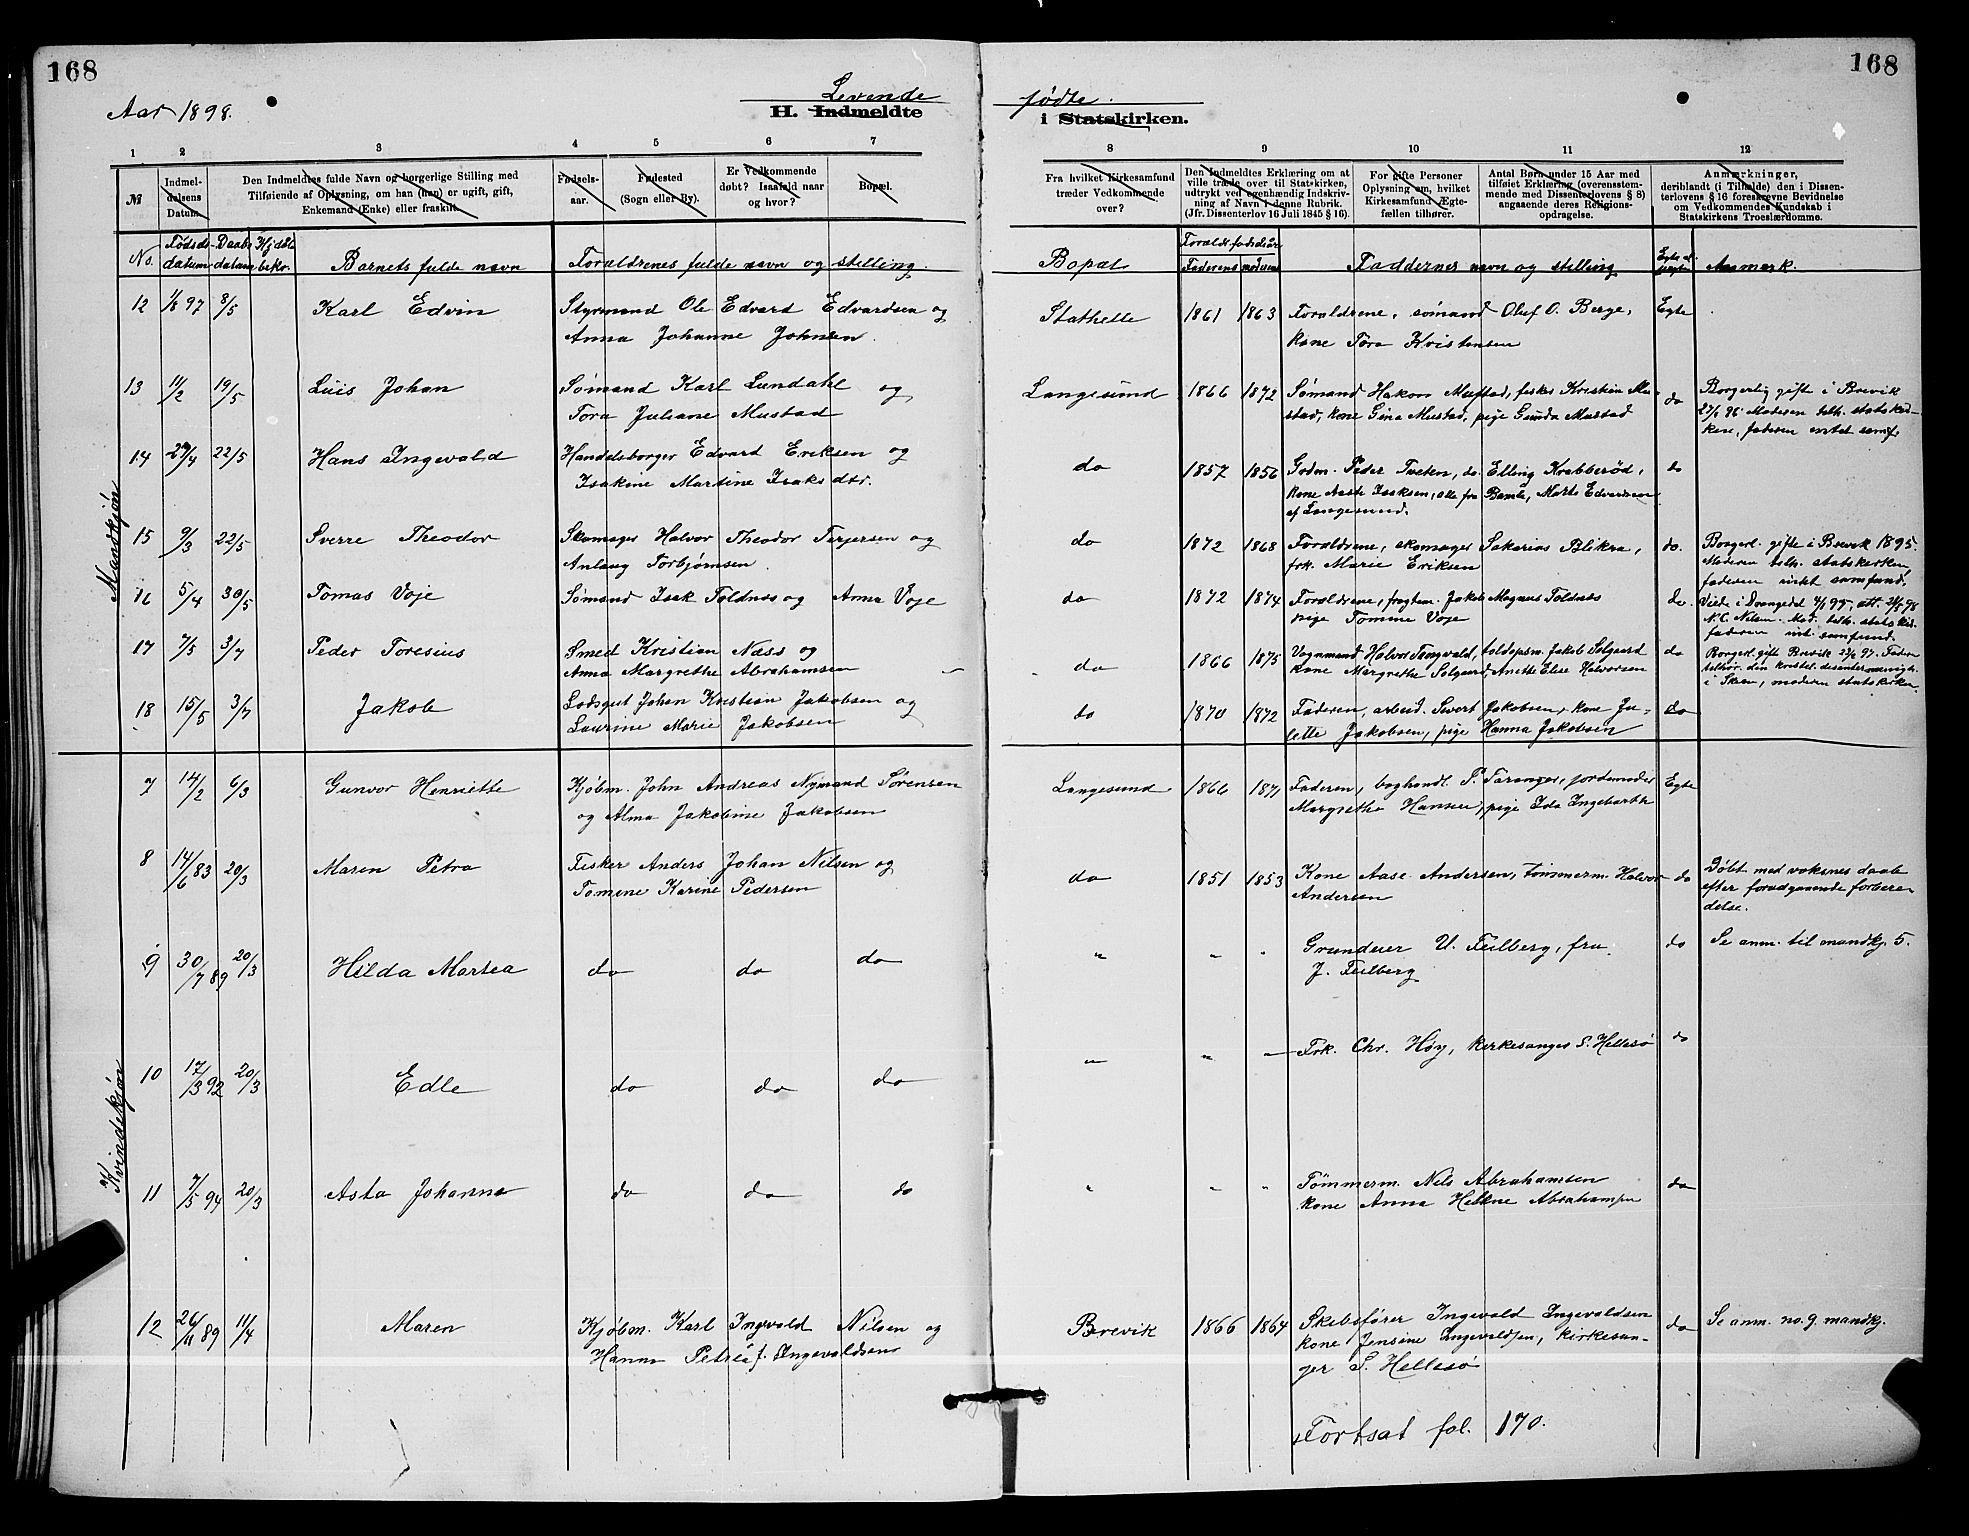 168
168
Aar 1898.
Levende
fødte.
H. Indmeldte
i Statskirken.
1 2 3 4 5 6 7
8 9 10 11 12
№
Indmel-
delsens
Datum.
Den Indmeldtes fulde Navn og borgerlige Stilling med
Tilføiende af Oplysning, om han (hun) er ugift, gift,
Enkemand (Enke) eller fraskilt.
Fødsels-
aar.
Fødested
(Sogn eller By).
Er Vedkommende
døbt? Isaafald naar
og hvor?
Bopæl.
Fra hvilket Kirkesamfund
træder Vedkommende
over?
Den Indmeldtes Erklæring om at
ville træde over til Statskirken,
udtrykt ved egenhændig Indskriv-
ning af Navn i denne Rubrik.
(Jfr. Dissenterlov 16 Juli 1845 § 16).
For gifte Personer
Oplysning om, hvilket
Kirkesamfund Ægte-
fællen tilhører.
Antal Børn under 15 Aar med
tilføiet Erklæring (overensstem-
mende med Dissenterlovens § 8)
angaaende deres Religions-
opdragelse.
Anmærkninger,
deriblandt (i Tilfælde) den i Dissen-
terlovens § 16 foreskrevne Bevidnelse
om Vedkommendes Kundskab i
Statskirkens Troeslærdomme.
No.
Fødsels-
datum
Daabs
datum
Hj.døbt
bekr.
Barnets fulde navn
Forældrenes fulde navn og stilling.
Bopæl
Foreldr. fødselsår
Faderens
moderens
Faddernes navn og stilling
Egte el.
uegte
Anmerk.
Mandkjøn
12 1/8 97 8/5 Karl Edvin Styrmand Ole Edvard Edvardsen og
Anna Johanne Johnsen.
Stathelle 1861 1863 Forældrene, sømand Oluf O. Berge,
kone Tora Kristensen
Egte
13 11/2 19/5 Luis Johan Sømand Karl Lundahl og
Tora Juliane Mustad
Langesund 1866 1872 Sømand Hakon Mustad, fisker Kristian Mu-
stad, kone Gina Mustad, pige Gunda Mustad
do
Borgerlig gifte i Brevik
Moderen tilh. statskir-
kene, faderen intet samf.
14 29/4 22/5 Hans Ingevald Handelsborger Edvard Eriksen og
Isakine Martine Isaksdtr.
do 1857 1856 Grdm. Peder Tveten, do. Elling Krabberød,
kone Aaste Isaksen, alle fra Bamle, Marte Edvardsen
af Langesund.
do
15 9/3 22/5 Sverre Theodor Skomager Halvor Theodor Terjersen og
Anlaug Torbjørnsen.
do 1872 1868 Forældrene, skomager Sakarias Blikra,
frk. Marie Eriksen
do.
Borgerl. gifte i Brevik 1895.
Moderen tilh. statskirken,
faderen intet samfund.
16 5/4 30/5 Tomas Voje Sømand Isak Toldnæs og Anna Voje
do 1872 1874 Forældrene, fragtem. Jakob Magnus Toldnæs
pige Tomine Voje
do.
Viede i Drangedal
N. C. Nilsen. Mod. tilh. statskir.
faderen int. samfund.
17 7/5 3/7 Peder Toresius Smed Kristian Næss og
Anna Margrethe Abrahamsen
do 1866 1875 Vognmand Halvor Tangvald, toldopsm. Jakob Solgaard
kone Margrethe Solgaard, Anette Elise Halvorsen
do
Borgerl. gift Brevik 27/6 97. Faderen
tilhør. den kristel. desentermenigh.
i Skien, moderen statskirken.
18 15/5 3/7 Jakob Lodsgut Johan Kristian Jakobsen og
Laurine Marie Jakobsen
do 1870 1872 Faderen, arbeid. Sivert Jakobsen, kone Ju-
lette Jakobsen, pige Hanna Jakobsen
do
Kvindekjøn
7 14/2 6/3 Gunvor Henriette Kjøbm. John Andreas Nymand Sørensen
og Alma Jakobine Jakobsen
Langesund 1866 1871 Faderen, boghandl. P. Taranger, jordemoder
Margrethe Hansen, pige Ida Ingebarth
Egte
8 14/6 83 20/3 Maren Petra Fisker Anders Johan Nilsen og
Tomine Karine Pedersen
do 1851 1853 Kone Aase Andersen, tømmerm. Halvor
Andersen
do
Døbt med voksnes daab
efter foradgaaende forbere-
delse.
9 30/7 89 20/3 Hilda Martea do do do
" " " Grunduer U. Feilberg, fru
J. Feilberg
do
Se anm. til mandkj. 5.
10 17/3 92 20/3 Edle do do do
" " " Frk. Chr. Høy, kirkesanger S. Hellesø
do
11 7/5 94 20/3 Asta Johanna do do do
" " " Tømmerm. Nils Abrahamsen
kone Anna Helene Abrahamsen
do
12 26/11 89 11/4 Maren Kjøbm. Karl Ingevald Nilsen og
Hanna Petrea f. Ingevaldsen
Brevik 1866 1864 Skibsfører Ingevald Ingevaldsen
kone Jensine Ingevaldsen, kirkesan-
ger S. Hellesø
do
Se anm. no. 9. mandkj.
Fortsat fol. 170.